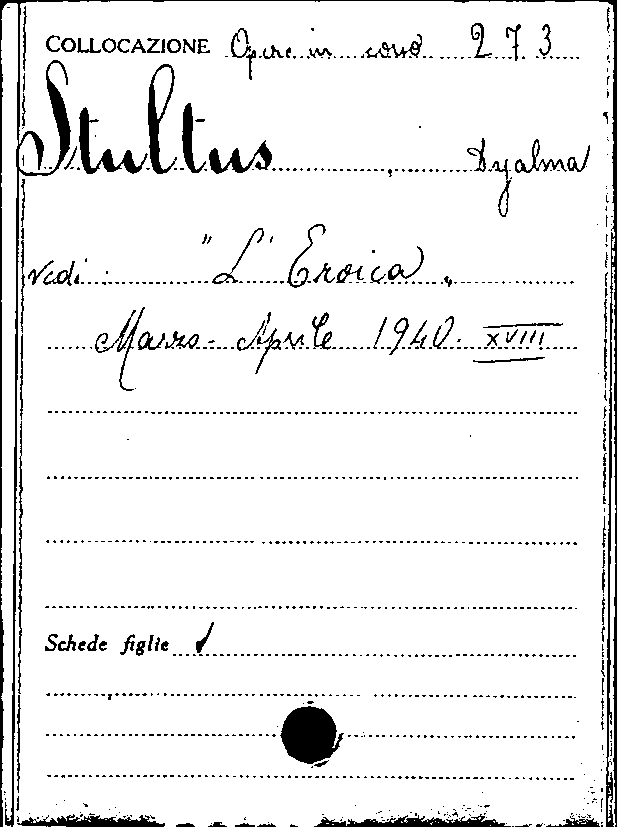 COLLOCAZIONE Opere in corso 273
Stultus, Dyalma
vedi: "L'Eroica"
Marzo-Aprile 1940. XVIII
Schede figlie ✓